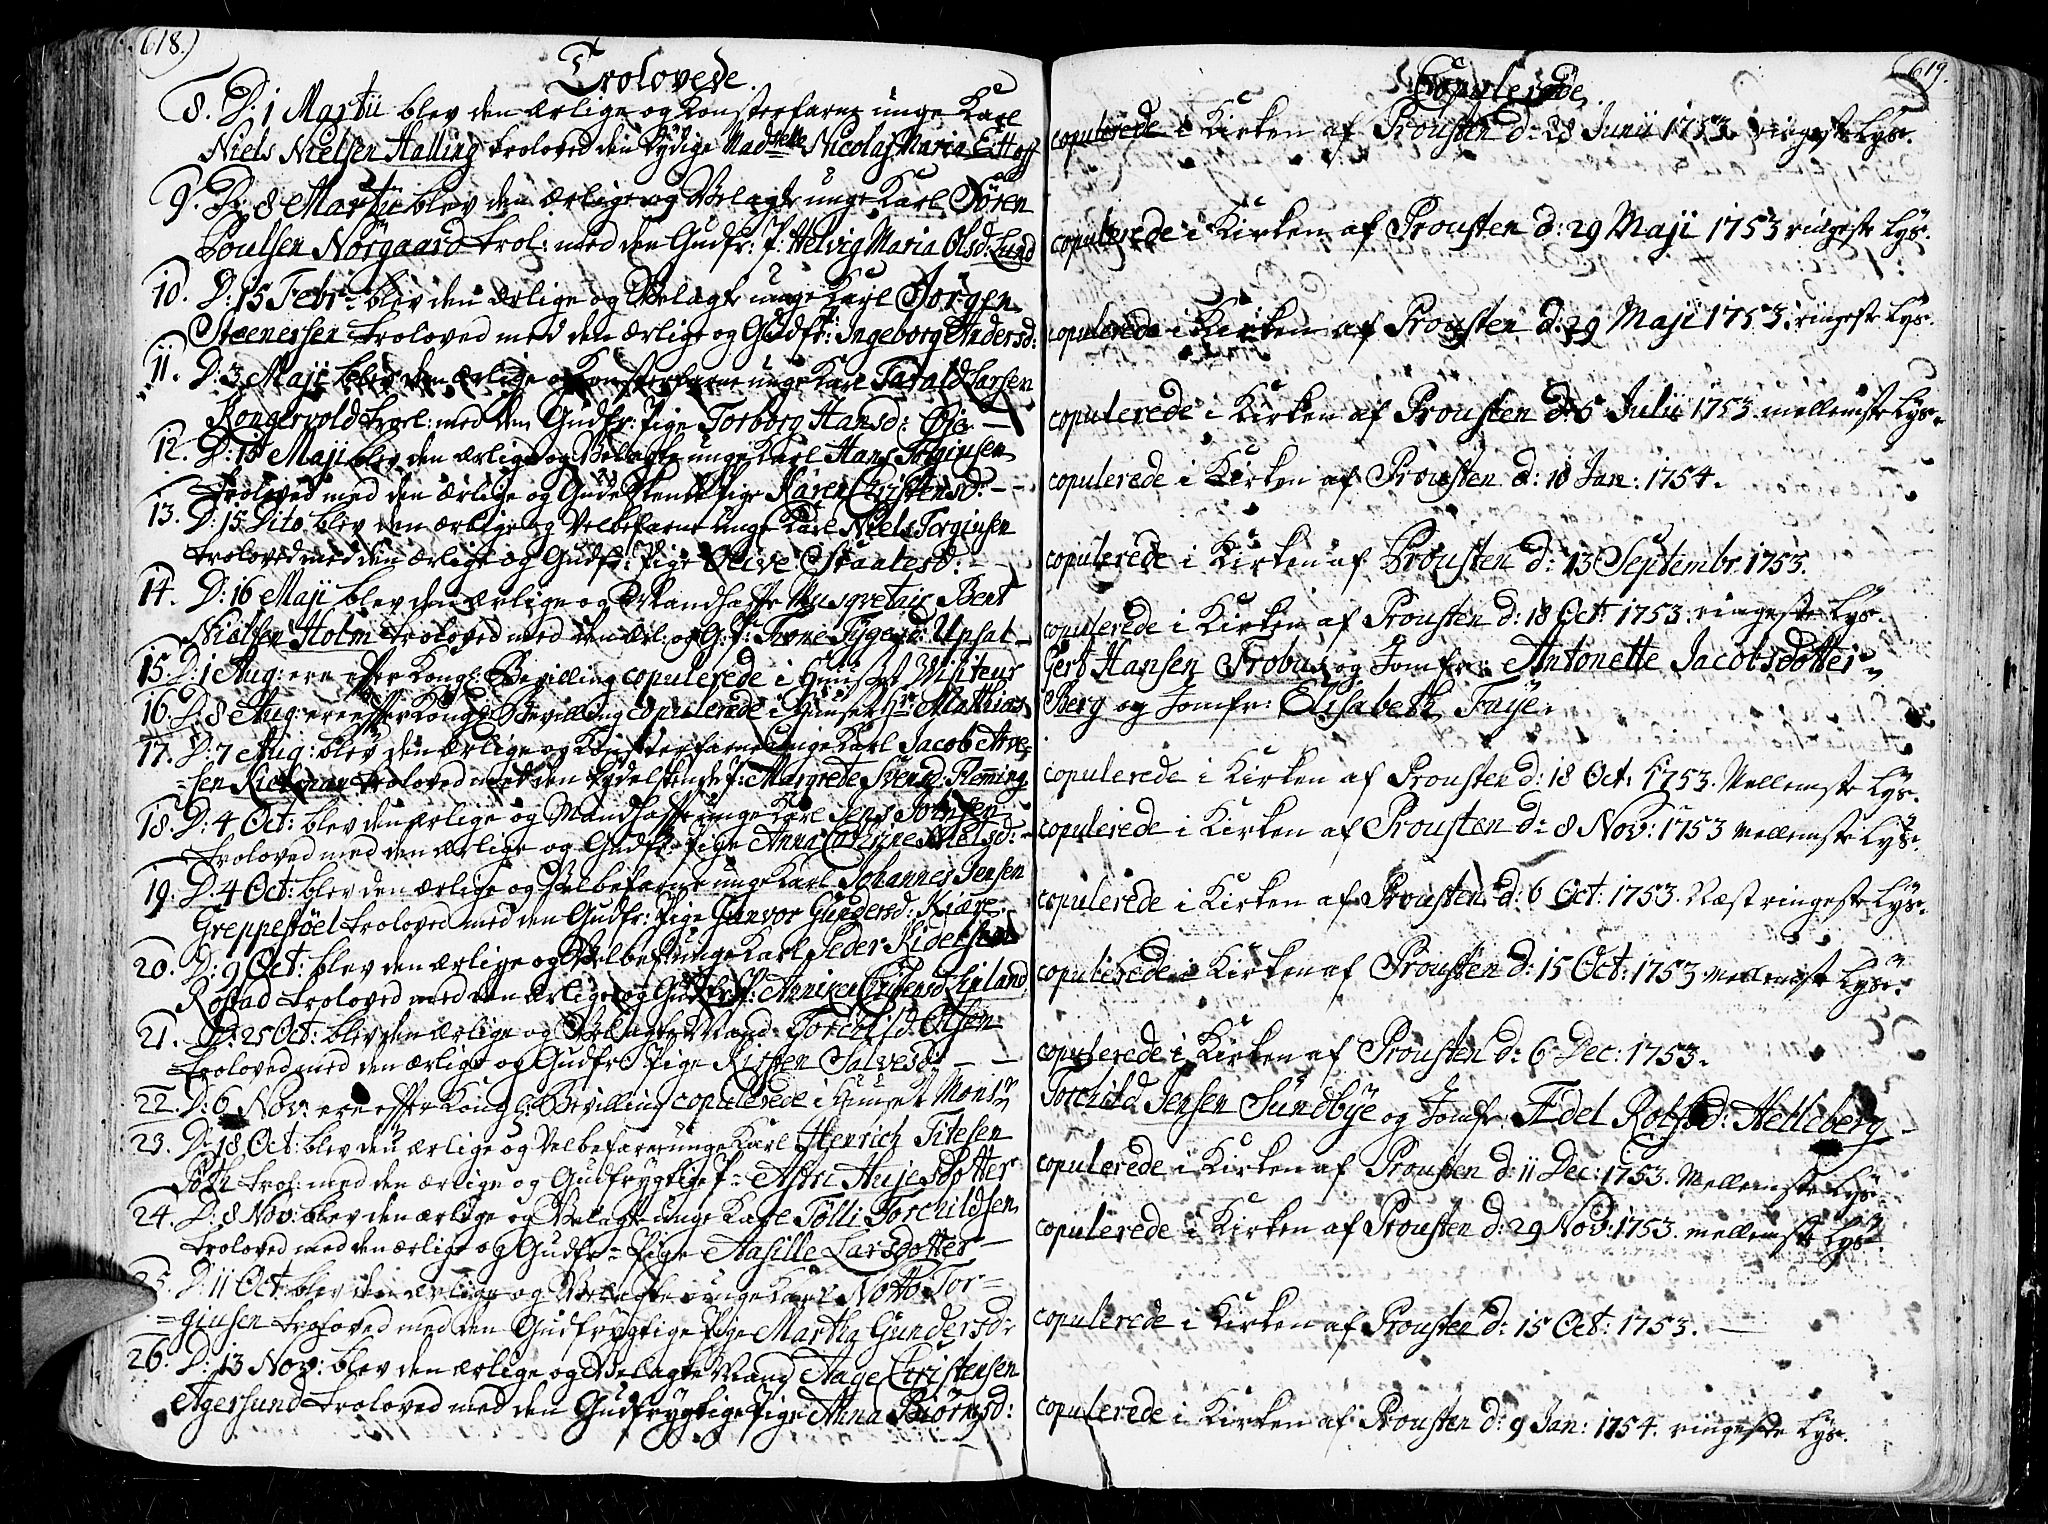 618.)
Trolovede.
8. D: 1 Martii blev den ærlige og Konsterfarne unge Karl
Niels Nielsen Halling troloved den Dydige Madselle Nicolaj Maria
9. D: 8 Martii blev den ærlige og Velagte unge Karl Sören
Poulsen Nörgaard trol: med den Gudfr: P: Helvig Maria Olsd: Lund
10. D: 15 Febr: blev den ærlige og Velagte unge Karl Jörgen
Steenersen troloved med den ærlige og Gudfr: Ingeborg Andersd:
11. D: 3 Maji blev den ærlige og Konsterfarne unge Karl Tarald Larsen
Kongervold trol: med den Gudfr: Pige Torborg Hansd: Öie
12. D: 10 Maji blev den ærlige og Velagte unge Karl Hans Torginsen
troloved med den ærlige og Gudelskende Pige Karen Christensd: -
13. D: 15 Dito blev den ærlige og Velbefarne unge Karl Niels Torginsen
troloved med den ærlige og Gudfr: Pige Olive Staalesd: -
14. D: 16 Maji blev den ærlige og Mandhafte Musqvetair Bent
Nielsen Holm troloved med den ærl: og G: P: Tygesd: Upsal
15. D: 1 Aug: ere efter Kongl: Bevilling copulerede i Huuset
16. D: 8 Aug: ere efter Kongl: Bevilling copulerede i Huuset Hr Mathias
17. D: 7 Aug: blev den ærlige og Konsterfarne unge Karl Jacob
sen troloved med den Dydelskende P: Margrete Svensd: Fleming
18. D: 4 Oct: blev den ærlige og Mandhafte unge Karl Jens
troloved med den ærlige og Gudfr: Pige Anna Nielsd: -
19. D: 4 Oct: blev den ærlige og Velbefarne unge Karl Johannes Jensen
Greppestöel troloved med den Gudfr: Pige Gunvor Gundersd: Kiære.
20. D: 9 Oct: blev den ærlige og Velbef: unge Karl Peder
Rostad troloved med den ærlige og Gudfr: P:
21. D: 25 Oct: blev den ærlige og Velagte Mand Torchild Olsen
troloved med den ærlige og Gudfr: Pige Kirsten Salvesd: - -
22. D: 6 Nov: ere efter Kongl: Bevilling copulerede i Huuset Monsr
23. D: 18 Oct: blev den ærlige og Velbefarne unge Karl Henrich
trol: med den ærlige og Gudfrygtige P: Astri
24. D: 8 Nov: blev den ærlige og Velagte unge Karl Tolli Torchildsen
troloved med den ærlige og Gudfr: Pige Aasille Larsdotter -
25. D: 11 Oct: blev den ærlige og Velagte unge Karl Notto Tor=
=giusen troloved med den Gudfrygtige Pige Martha Gundersd:
26. D: 13 Nov: blev den ærlige og Velagte Mand Aage Christensen
Agersund troloved med den Gudfrygtige Pige Anna Biörnsd:
619.
Copulerede.
copulerede i Kirken af Prousten d: 28 Junii 1753. ringeste Lys.
copulerede i Kirken af Prousten d: 29 Maji 1753 ringeste Lys.
copulerede i Kirken af Prousten d: 29 Maji 1753. ringeste Lys.
copulerede i Kirken af Prousten d: 5 Julii 1753. mellemste Lys.
copulerede i Kirken af Prousten d: 10 Jan: 1754.
copulerede i Kirken af Prousten d: 13 Septembr 1753.
copulerede i Kirken af Prousten d: 18 Oct: 1753. ringeste Lys.
Gert Hansen og Jomfr: Antonette Jacobsdotter
Berg og Jomfr: Elisabeth Faÿe.
copulerede i Kirken af Prousten d: 18 Oct: 1753. Mellemste Lys.
copulerede i Kirken af Prousten d: 8 Nov: 1753 Mellemste Lys.
copulerede i Kirken af Prousten d: 6 Oct: 1753. Næst ringeste Lys.
copulerede i Kirken af Prousten d: 15 Oct: 1753 Mellemste Lys.
copulerede i Kirken af Prousten d: 6 Dec: 1753.
Torchild Jensen Sundbÿe og Jomfr: Edel Rolfsd: Helleberg
copulerede i Kirken af Prousten d: 11 Dec: 1753. Mellemste Lys.
copulerede i Kirken af Prousten d: 29 Nov: 1753. mellemste Lys.
copulerede i Kirken af Prousten d: 15 Oct: 1753. -
copulerede i Kirken af Prousten d: 9 Jan: 1754. ringeste Lys.